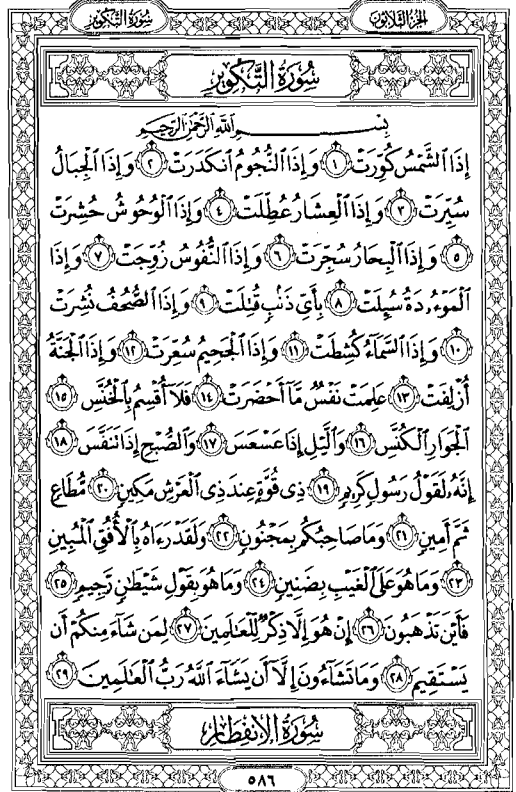 سُورَةُ التَّكْوِيرِ
الجُزْءُ الثَّلَاثُونَ
سُورَةُ التَّكْوِيرِ
بِسْمِ اللَّهِ الرَّحْمَٰنِ الرَّحِيمِ
إِذَا الشَّمْسُ كُوِّرَتْ ١ وَإِذَا النُّجُومُ انكَدَرَتْ ٢ وَإِذَا الْجِبَالُ
سُيِّرَتْ ٣ وَإِذَا الْعِشَارُ عُطِّلَتْ ٤ وَإِذَا الْوُحُوشُ حُشِرَتْ
٥ وَإِذَا الْبِحَارُ سُجِّرَتْ ٦ وَإِذَا النُّفُوسُ زُوِّجَتْ ٧ وَإِذَا
الْمَوْءُۥدَةُ سُئِلَتْ ٨ بِأَيِّ ذَنۢبٍ قُتِلَتْ ٩ وَإِذَا الصُّحُفُ نُشِرَتْ
١٠ وَإِذَا السَّمَاءُ كُشِطَتْ ١١ وَإِذَا الْجَحِيمُ سُعِّرَتْ ١٢ وَإِذَا الْجَنَّةُ
أُزْلِفَتْ ١٣ عَلِمَتْ نَفْسٌ مَّا أَحْضَرَتْ ١٤ فَلَا أُقْسِمُ بِالْخُنَّسِ ١٥
الْجَوَارِ الْكُنَّسِ ١٦ وَالَّيْلِ إِذَا عَسْعَسَ ١٧ وَالصُّبْحِ إِذَا تَنَفَّسَ ١٨
إِنَّهُۥ لَقَوْلُ رَسُولٍ كَرِيمٍ ١٩ ذِي قُوَّةٍ عِندَ ذِي الْعَرْشِ مَكِينٍ ٢٠ مُّطَاعٍ
ثَمَّ أَمِينٍ ٢١ وَمَا صَاحِبُكُم بِمَجْنُونٍ ٢٢ وَلَقَدْ رَءَاهُ بِالْأُفُقِ الْمُبِينِ
٢٣ وَمَا هُوَ عَلَى الْغَيْبِ بِضَنِينٍ ٢٤ وَمَا هُوَ بِقَوْلِ شَيْطَٰنٍ رَّجِيمٍ ٢٥
فَأَيْنَ تَذْهَبُونَ ٢٦ إِنْ هُوَ إِلَّا ذِكْرٌ لِّلْعَٰلَمِينَ ٢٧ لِمَن شَاءَ مِنكُمْ أَن
يَسْتَقِيمَ ٢٨ وَمَا تَشَاءُونَ إِلَّا أَن يَشَاءَ اللَّهُ رَبُّ الْعَٰلَمِينَ ٢٩
سُورَةُ الِانفِطَارِ
٥٨٦